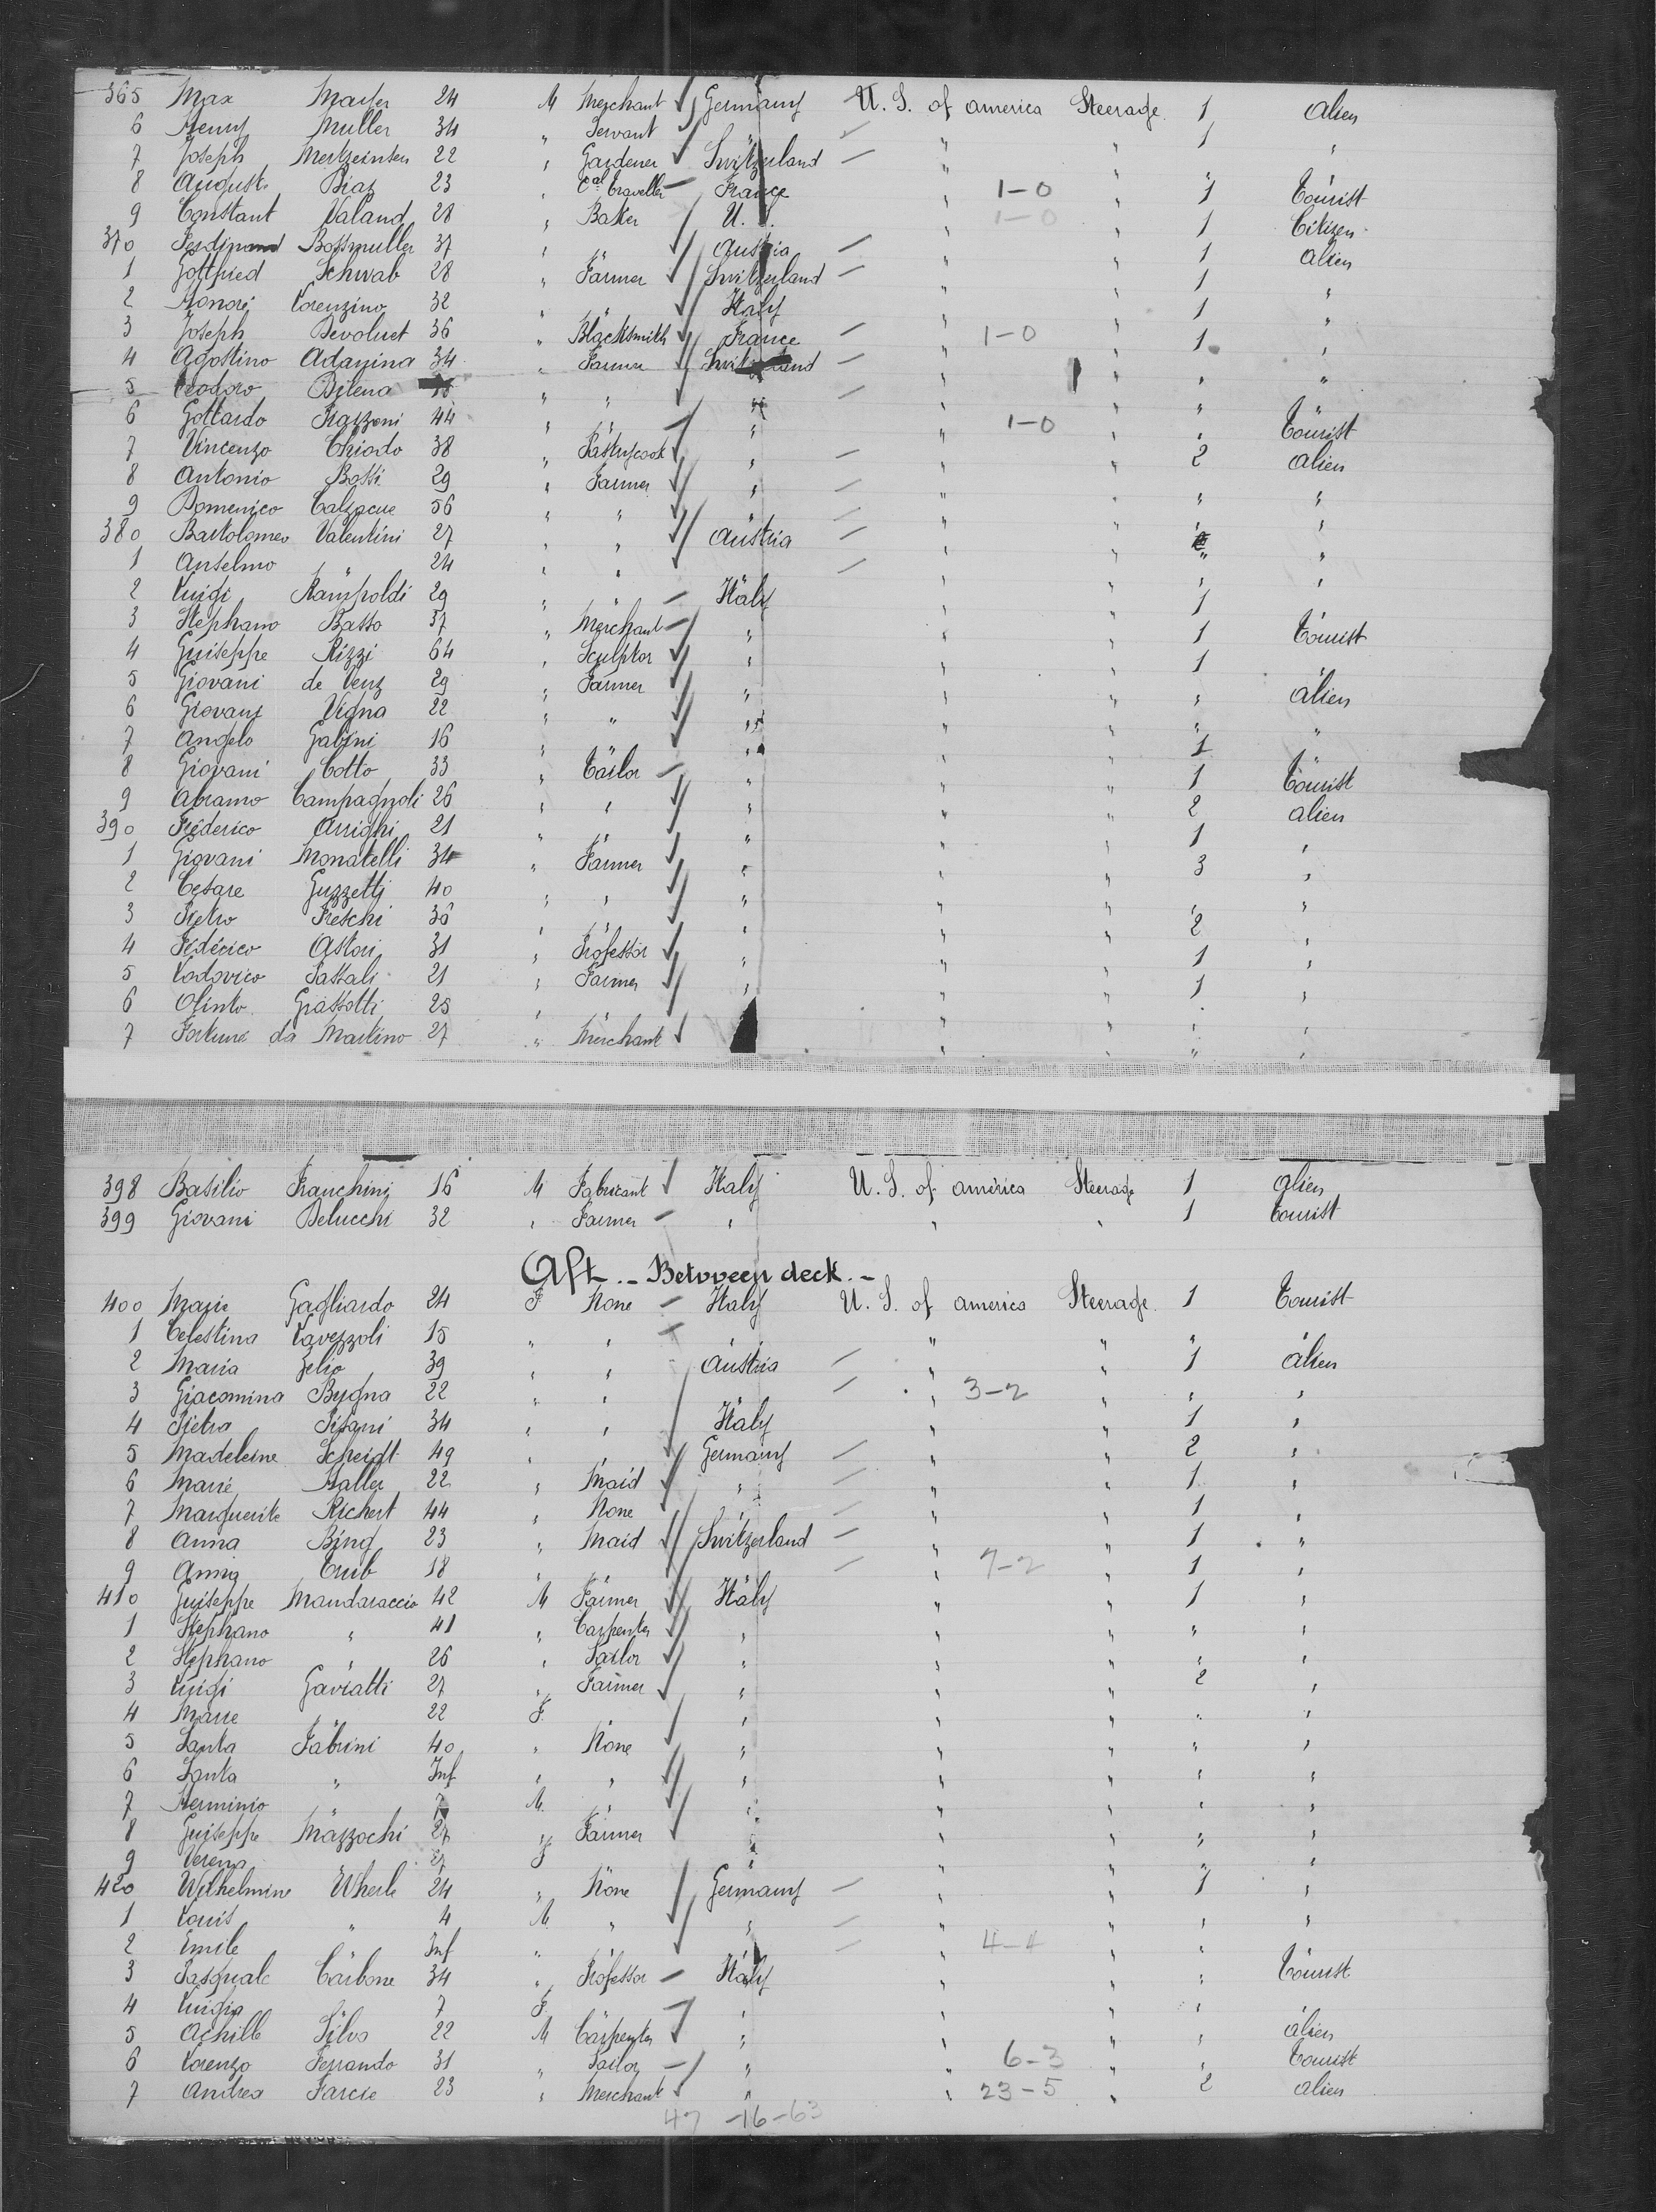 365 Max Mayer 24 M Merchant Germany U. S. of america Steerage 1 Alien
6 Henry Muller 34 " Servant " " " 1 "
7 Joseph 22 " Gardener Switzerland " " "
8 August Diaz 23 " Cal traveller France " 1-0 " 1 Tourist
9 Constant Valand 28 " Baker U. S. 1-0 " 1 Citizen
370 Ferdinand Bossmuller 37 " " Austria " " 1 Alien
1 Gottfried Schwab 28 " Farmer Switzerland " " 1 "
2 Honoré Lorenzino 32 " " Italy " " 1 "
3 Joseph Devoluet 36 " Blacksmith France " 1-0 " 1 "
4 Agostino 34 " Farmer Switzerland " " " "
5 Teodoro Bilena " " " " " " "
6 Gottardo Frazzoni 44 " " " " 1-0 " " Tourist
7 Vincenzo Chiodo 38 " Pastrycook " " " 2 Alien
8 Antonio Bossi 29 " Farmer " " " " "
9 Domenico Calzacue 56 " " " " " " "
380 Bartolomeo Valentini 27 " " Austria " " " "
1 Anselmo " 24 " " " " " "
2 Luigi Rampoldi 29 " " Italy " " 1
3 Stephano Basso 37 " Merchant " " " 1 Tourist
4 Guiseppe Rizzi 64 " Sculptor " " " 1
5 Giovani de Venz 29 " Farmer " " " " alien
6 Giovani Vigna 22 " " " " " " "
7 Angelo Galfini 16 " " " " 1 "
8 Giovani Cotto 33 " Tailor " " " 1 Tourist
9 Abramo Campagnoli 26 " " " " " 2 alien
390 Féderico Arrighi 21 " " " " 1 "
1 Giovani Monatelli 34 " Farmer " " " 3 "
2 Cesare Guzzetti 40 " " " " " " "
3 Pietro Freschi 36 " " " " 2 "
4 Féderico Astori 31 " Professor " " " 1 "
5 Lodovico Sassali 21 " Farmer " " " 1 "
6 Olinto Grassotti 25 " " "
7 Fortuné da Martino 27 " Merchant " " " "
398 Basilio Franchini 16 M Fabricant Italy U. S. of america Steerage 1 alien
399 Giovani Belucchi 32 " Farmer " " " 1 Tourist
Aft .- Between deck.-
400 Marie Gagliardo 24 F None Italy U. S. of america Steerage 1 Tourist
1 Celestina Lavezzoli 15 " " " " " "
2 Maria Zelio 39 " " Austria " " 1 alien
3 Giacomina Bygna 22 " " " 3-2 " " "
4 Pietra Pisani 34 " " Italy " " 1 "
5 Madeleine Scheidt 49 " " Germany " " 2 "
6 Marie Haller 22 " Maid " " " 1 "
7 Marguerite Richert 44 " None " " " 1 "
8 Anna Bing 23 " Maid Switzerland " " 1 "
9 Anna Trüb 18 " " " " 7-2 " 1 "
410 Guiseppe Mandaraccio 42 M Farmer Italy " " 1 "
1 Stephano " 41 " Carpenter " " " " "
2 Stephano " 26 " Tailor " " " " "
3 Luigi Gaviatti 27 " Farmer " " " 2 "
4 Marie " 22 F. " " " " "
5 Santa Fabrini 40 " None " " " " "
6 Santa " Inf " " " " " " "
7 Herminio " 7 M. " " " " " "
8 Guiseppe Mazzochi 27 " Farmer " " " " "
9 Verena " 27 F " " " " "
420 Wilhelmine Wherle 24 " None Germany " " 1 "
1 Louis " 4 M. " " " " " "
2 Emile " Inf " " 4-4 " "
3 Pasquale Carbone 34 " Professor Italy " " " Tourist
4 Luigia " 7 F. " " " "
5 Achille Silvo 22 M Carpenter " " " " alien
6 Lorenzo Ferrando 31 " Tailor " " 6-3 " " Tourist
7 Andrea Farcie 23 " Merchant " " 23-5 " 2 alien
47 -16-63